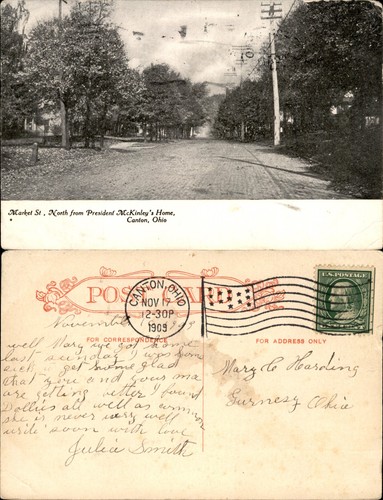 Market St., North from President McKinley's Home,
Canton, Ohio
POST CARD
CANTON, OHIO
NOV 17
12-30P
1909
U.S. POSTAGE
November
FOR CORRESPONDENCE
FOR ADDRESS ONLY
well Mary we got home
last sunday I was
sick
that you and your ma
are getting better I found
Dollie all well as
she is never very well
write soon with love
Julia Smith
Mary C Harding
Gurnesy Ohio